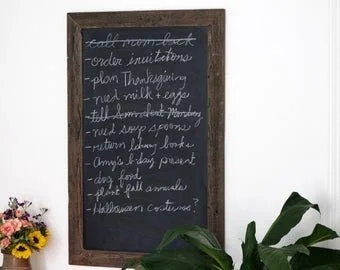 call mom back
- order invitations
- plan Thanksgiving
- need milk + eggs
- tell Sam about Monday
- need soup spoons
- return library books
- Amy's b-day present
- dog food
- plant fall annuals
- Halloween costumes?